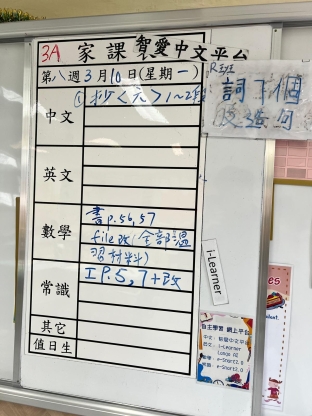 3A 家課 智愛中文平台
第八週 3月10日(星期一)
中文
①抄<元>1~2段
英文
數學
書p.56,57
file改(全部溫
習材料)
常識
工P.5,7+改
其它
值日生
R班
詞了個
造句
i-Learner
自主學習 網上平台
中文:智愛中文平台
英文:i-Learner